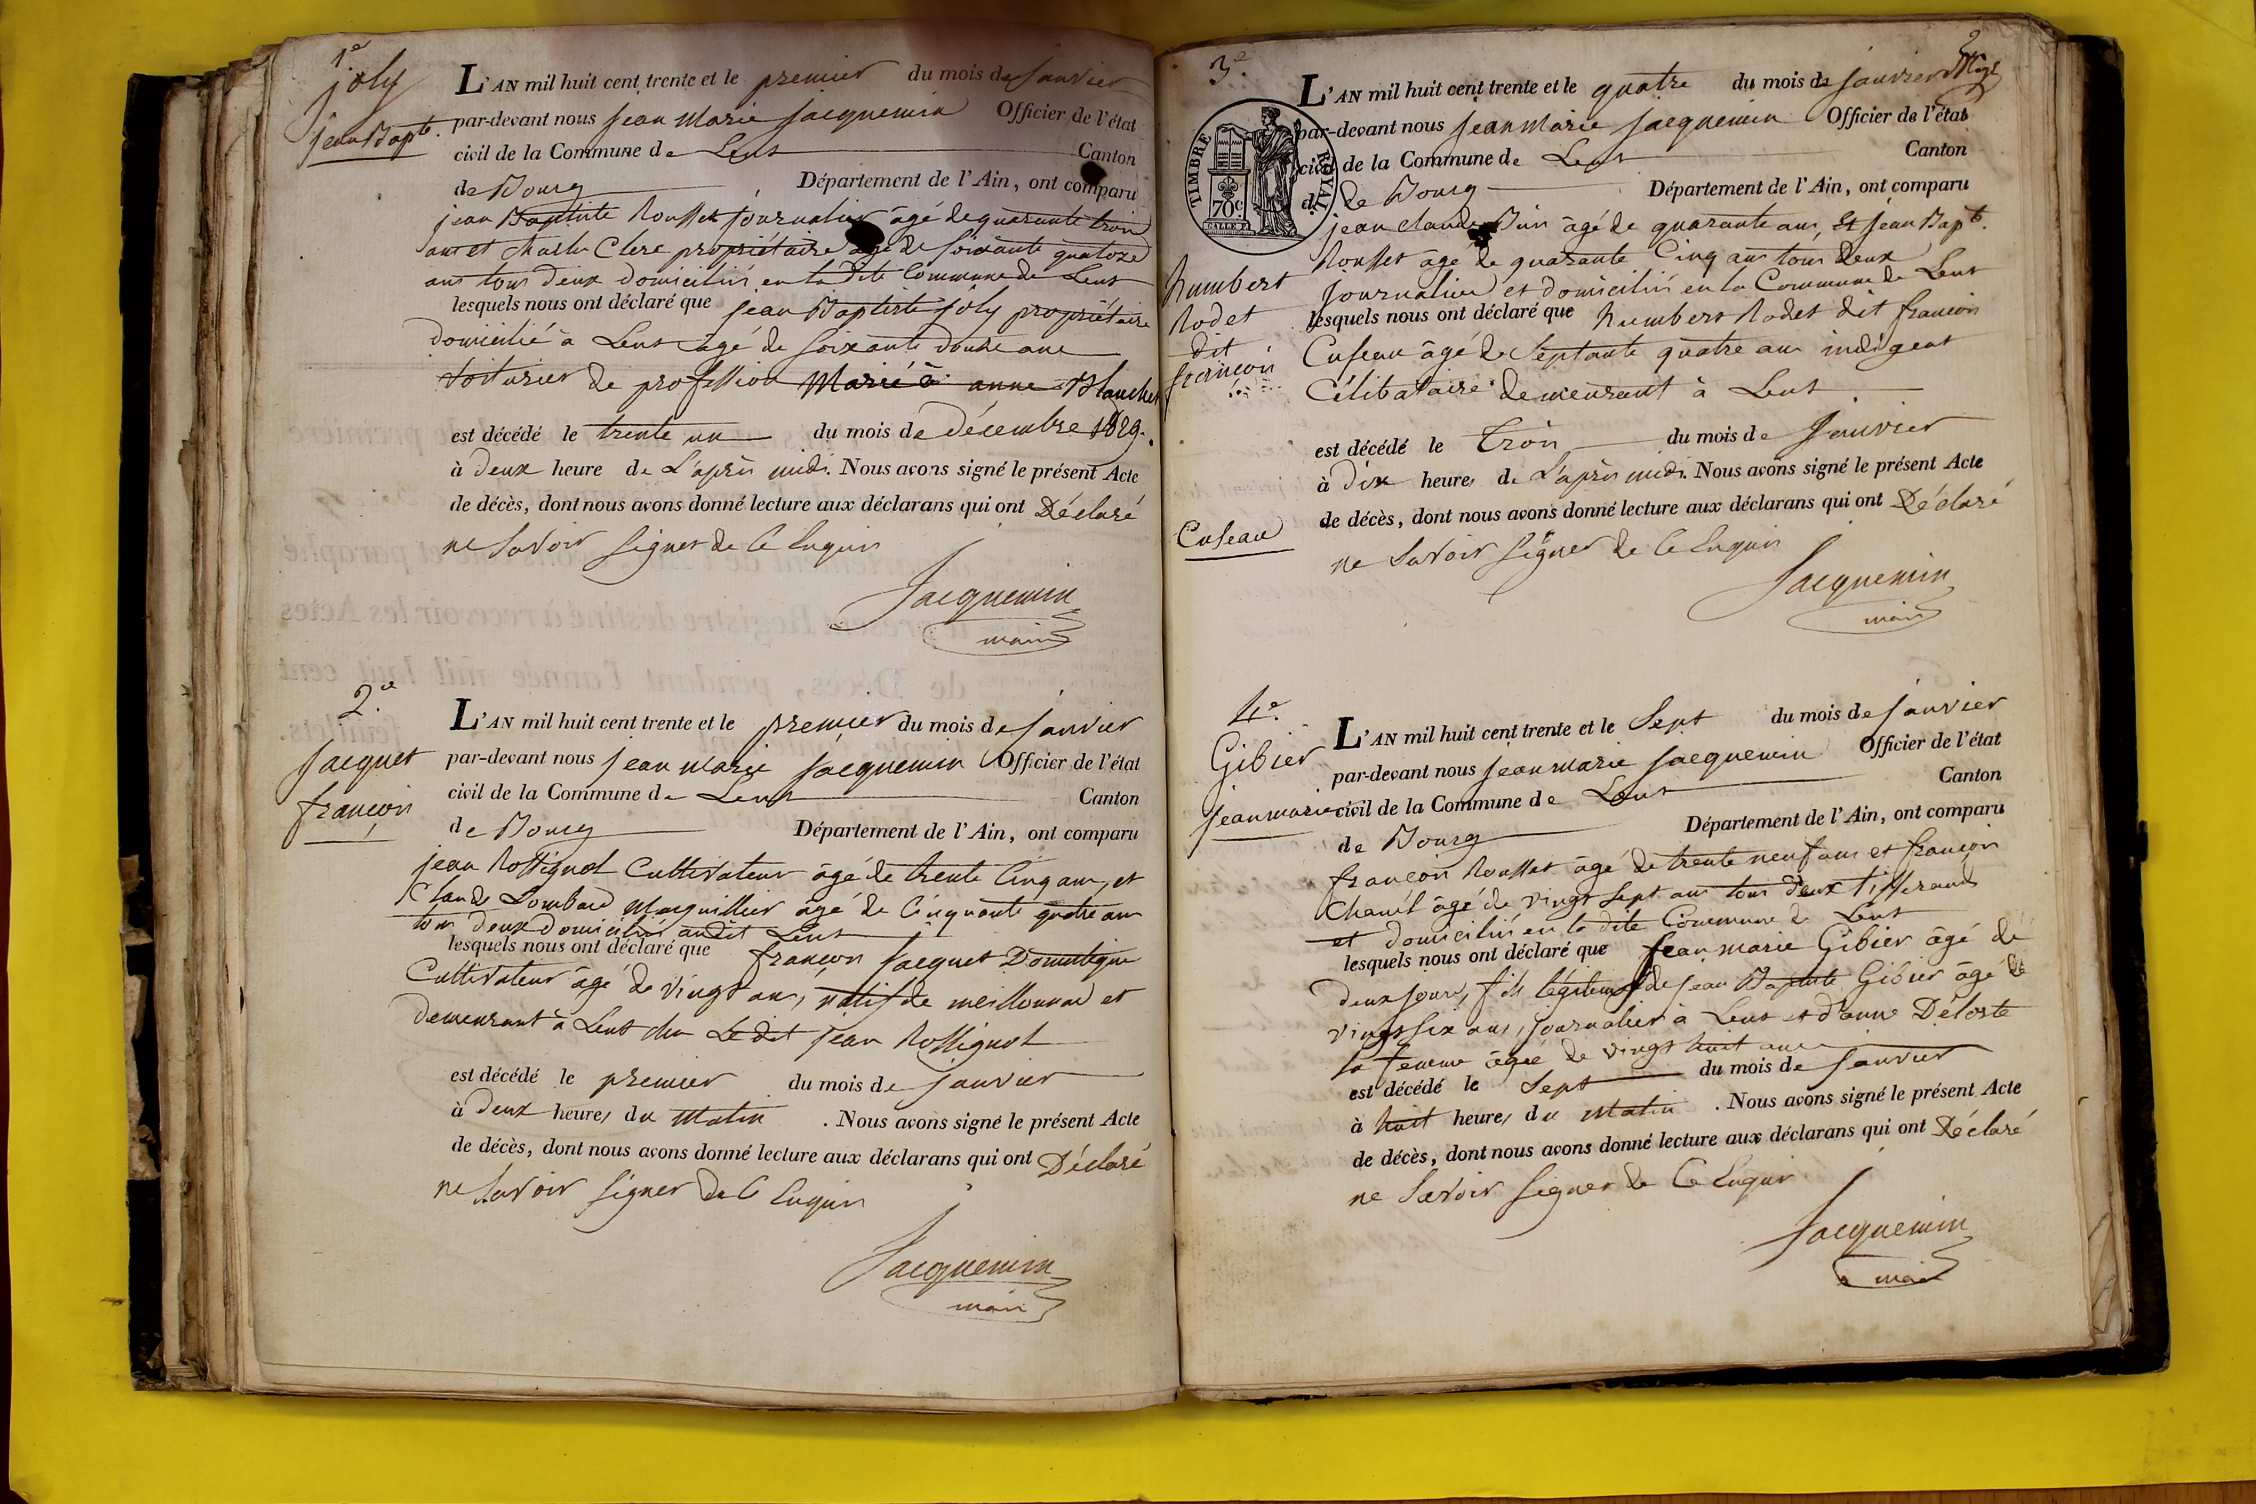 1e
joly
jean Bapte.
L'AN mil huit cent trente et le premier du mois de Janvier
par-devant nous jean marie jacquemin Officier de l'état
civil de la Commune de Lent Canton
de Bourg Département de l'Ain, ont comparu
jean Baptiste Rousset journalier âgé de quarante trois
ans et Charles Clere propriétaire âgé de soixante quatorze
ans tous deux domiciliés en la dite Commune de Lent
lesquels nous ont déclaré que jean Baptiste joly propriétaire
domicilié à Lent âgé de soixante douze ans
voiturier de profession Marié à anne Blanchet
est décédé le trente un du mois de décembre 1829.
à deux heure de L'après midi. Nous avons signé le présent Acte
de décès, dont nous avons donné lecture aux déclarans qui ont Déclaré
ne Savoir signer de Ce Enquis
Jacquemin
maire
2e
Jacquet
françois
L'AN mil huit cent trente et le premier du mois de janvier
par-devant nous jean marie jacquemin Officier de l'état
civil de la Commune de Lent Canton
de Bourg Département de l'Ain, ont comparu
jean Rossignol Cultivateur âgé de trente Cinq ans, et
Claude Lombard Marguillier âgé de Cinquante quatre ans
tous deux domiciliés audit Lent
lesquels nous ont déclaré que françois jacquet Domestique
Cultivateur âgé de vingt ans, natif de meillonnas et
demeurant à Lent chez Le dit jean Rossignol
est décédé le premier du mois de janvier
à deux heures du Matin . Nous avons signé le présent Acte
de décès, dont nous avons donné lecture aux déclarans qui ont Déclaré
ne Savoir signer de Ce Enquis
Jacquemin
maire
3e.
TIMBRE ROYAL
70c
L'AN mil huit cent trente et le quatre du mois de janvier
par-devant nous jean marie jacquemin Officier de l'état
civil de la Commune de Lent Canton
de Bourg Département de l'Ain, ont comparu
jean Claude âgé de quarante ans, Et jean Bapte.
Rousset âgé de quarante Cinq ans tous deux
journaliers et domiciliés en la Commune de Lent
humbert
Rodet
dit
françois
Cuseau
lesquels nous ont déclaré que humbert Rodet dit françois
Cuseau âgé de Septante quatre ans indigent
Célibataire demeurant à Lent
est décédé le trois du mois de janvier
à dix heures de L'après midi. Nous avons signé le présent Acte
de décès, dont nous avons donné lecture aux déclarans qui ont Déclaré
ne Savoir signer de Ce Enquis
Jacquemin
maire
4e.
Gibier
jean marie
L'AN mil huit cent trente et le Sept du mois de janvier
par-devant nous jean marie jacquemin Officier de l'état
civil de la Commune de Lent Canton
de Bourg Département de l'Ain, ont comparu
françois Rousset âgé de trente neuf ans et françois
Chanel âgé de vingt Sept ans tous deux tisserands
et domiciliés en la dite Commune de Lent
lesquels nous ont déclaré que jean marie Gibier âgé de
deux jours, fils légitime de jean Baptiste Gibier âgé de
vingt Six ans, journalier à Lent et d'anne Deloste
Sa femme âgée de vingt huit ans
est décédé le Sept du mois de janvier
à huit heures du Matin . Nous avons signé le présent Acte
de décès, dont nous avons donné lecture aux déclarans qui ont Déclaré
ne Savoir signer de Ce Enquis
Jacquemin
maire